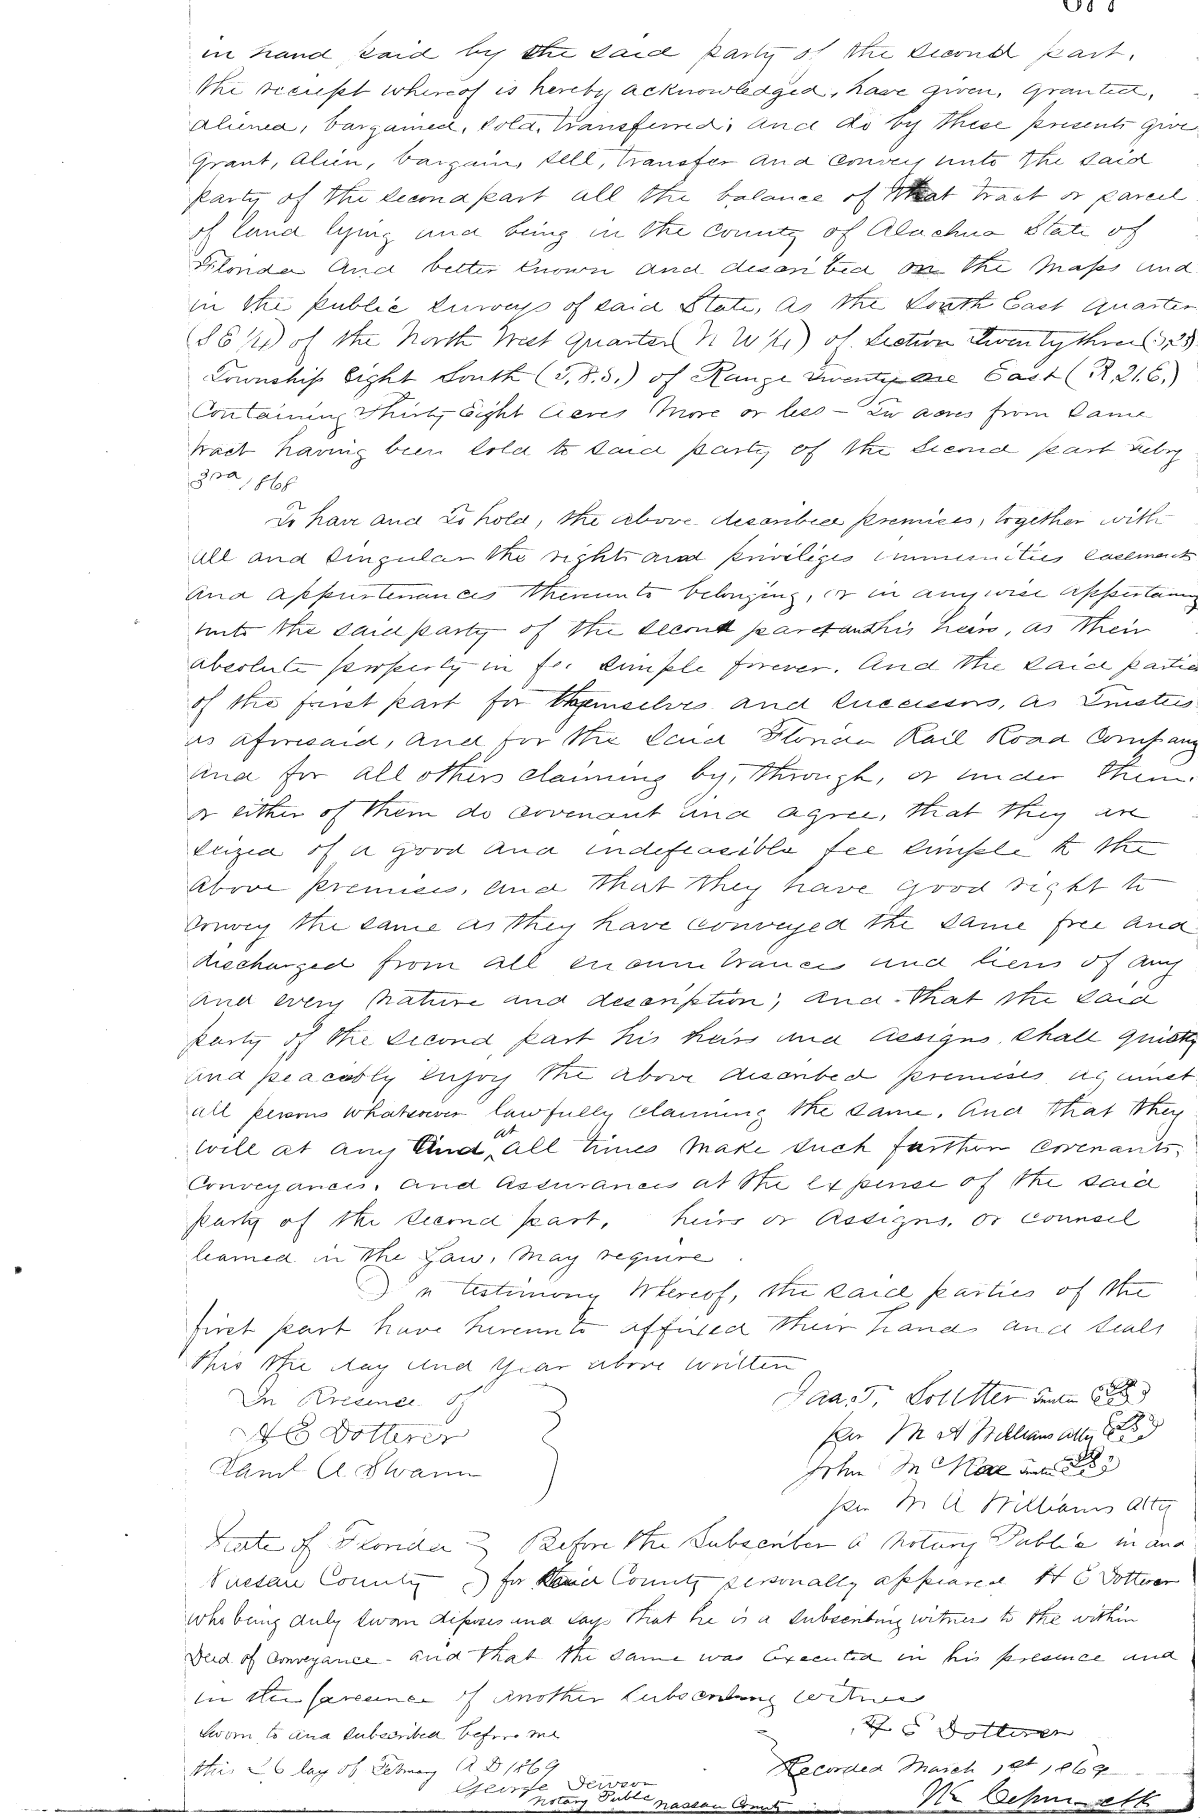 in hand paid by the said party of the second part,
the reciept whereof is hereby acknowledged, have given, granted,
aliened, bargained, sold, transferred; and do by these presents give
grant, alien, bargain, sell, transfer and convey unto the said
party of the second part all the balance of that tract or parcel
of land lying and being in the County of Alachua State of
Florida and better known and described on the maps and
in the public surveys of said State, as the South East quarter
(S E 1/4) of the North West quarter (N W 1/4) of Section Twenty three
Township Eight South (T. 8. S.) of Range Twenty one East (R. 21. E.)
Containing Thirty Eight Acres more or less - Two acres from same
tract having been sold to said party of the second part Febry
3rd, 1868
To have and to hold, the above described premises, together with
all and singular the rights and priviliges immunities easements
and appurtenances thereunto belonging, or in anywise appertaining
unto the said party of the second part and his heirs, as their
absolute property in fee simple forever. And the said parties
of the first part for themselves and successors, as Trustees
as aforesaid, and for the said Florida Rail Road Company
and for all others claiming by, through, or under them.
or either of them do covenant and agree, that they are
seized of a good and indefeasible fee simple to the
above premises, and that they have good right to
convey the same as they have conveyed the same free and
discharged from all encumbrances and liens of any
and every nature and description; and that the said
party of the second part his heirs and assigns shall quietly
and peacably enjoy the above described premises against
all persons whatsoever lawfully claiming the same. And that they
will at any and at all times make such further covenants,
Conveyances, and assurances at the expense of the said
party of the second part, heirs or assigns, or counsel
learned in the Law, may require.
In testimony whereof, the said parties of the
first part have hereunto affixed their hands and seals
this the day and year above written
In Presence of
Jas. T. Soutter Trustee
H E Dotterer
per M A Williams Atty
Saml A. Swann
John McRae Trustee
per M A Williams Atty
State of Florida Before the Subscriber a Notary Public in and
Nassau County for said County personally appeared H E Dotterer
who being duly sworn diposes and says that he is a subscribing witness to the within
Deed of Conveyance - and that the same was executed in his presence and
in the presence of another subscribing witness
Sworn to and subscribed before me
H E Dotterer
this 26 day of Febuary A D 1869
Recorded March 1st 1869
George
Notary Public Nassau County